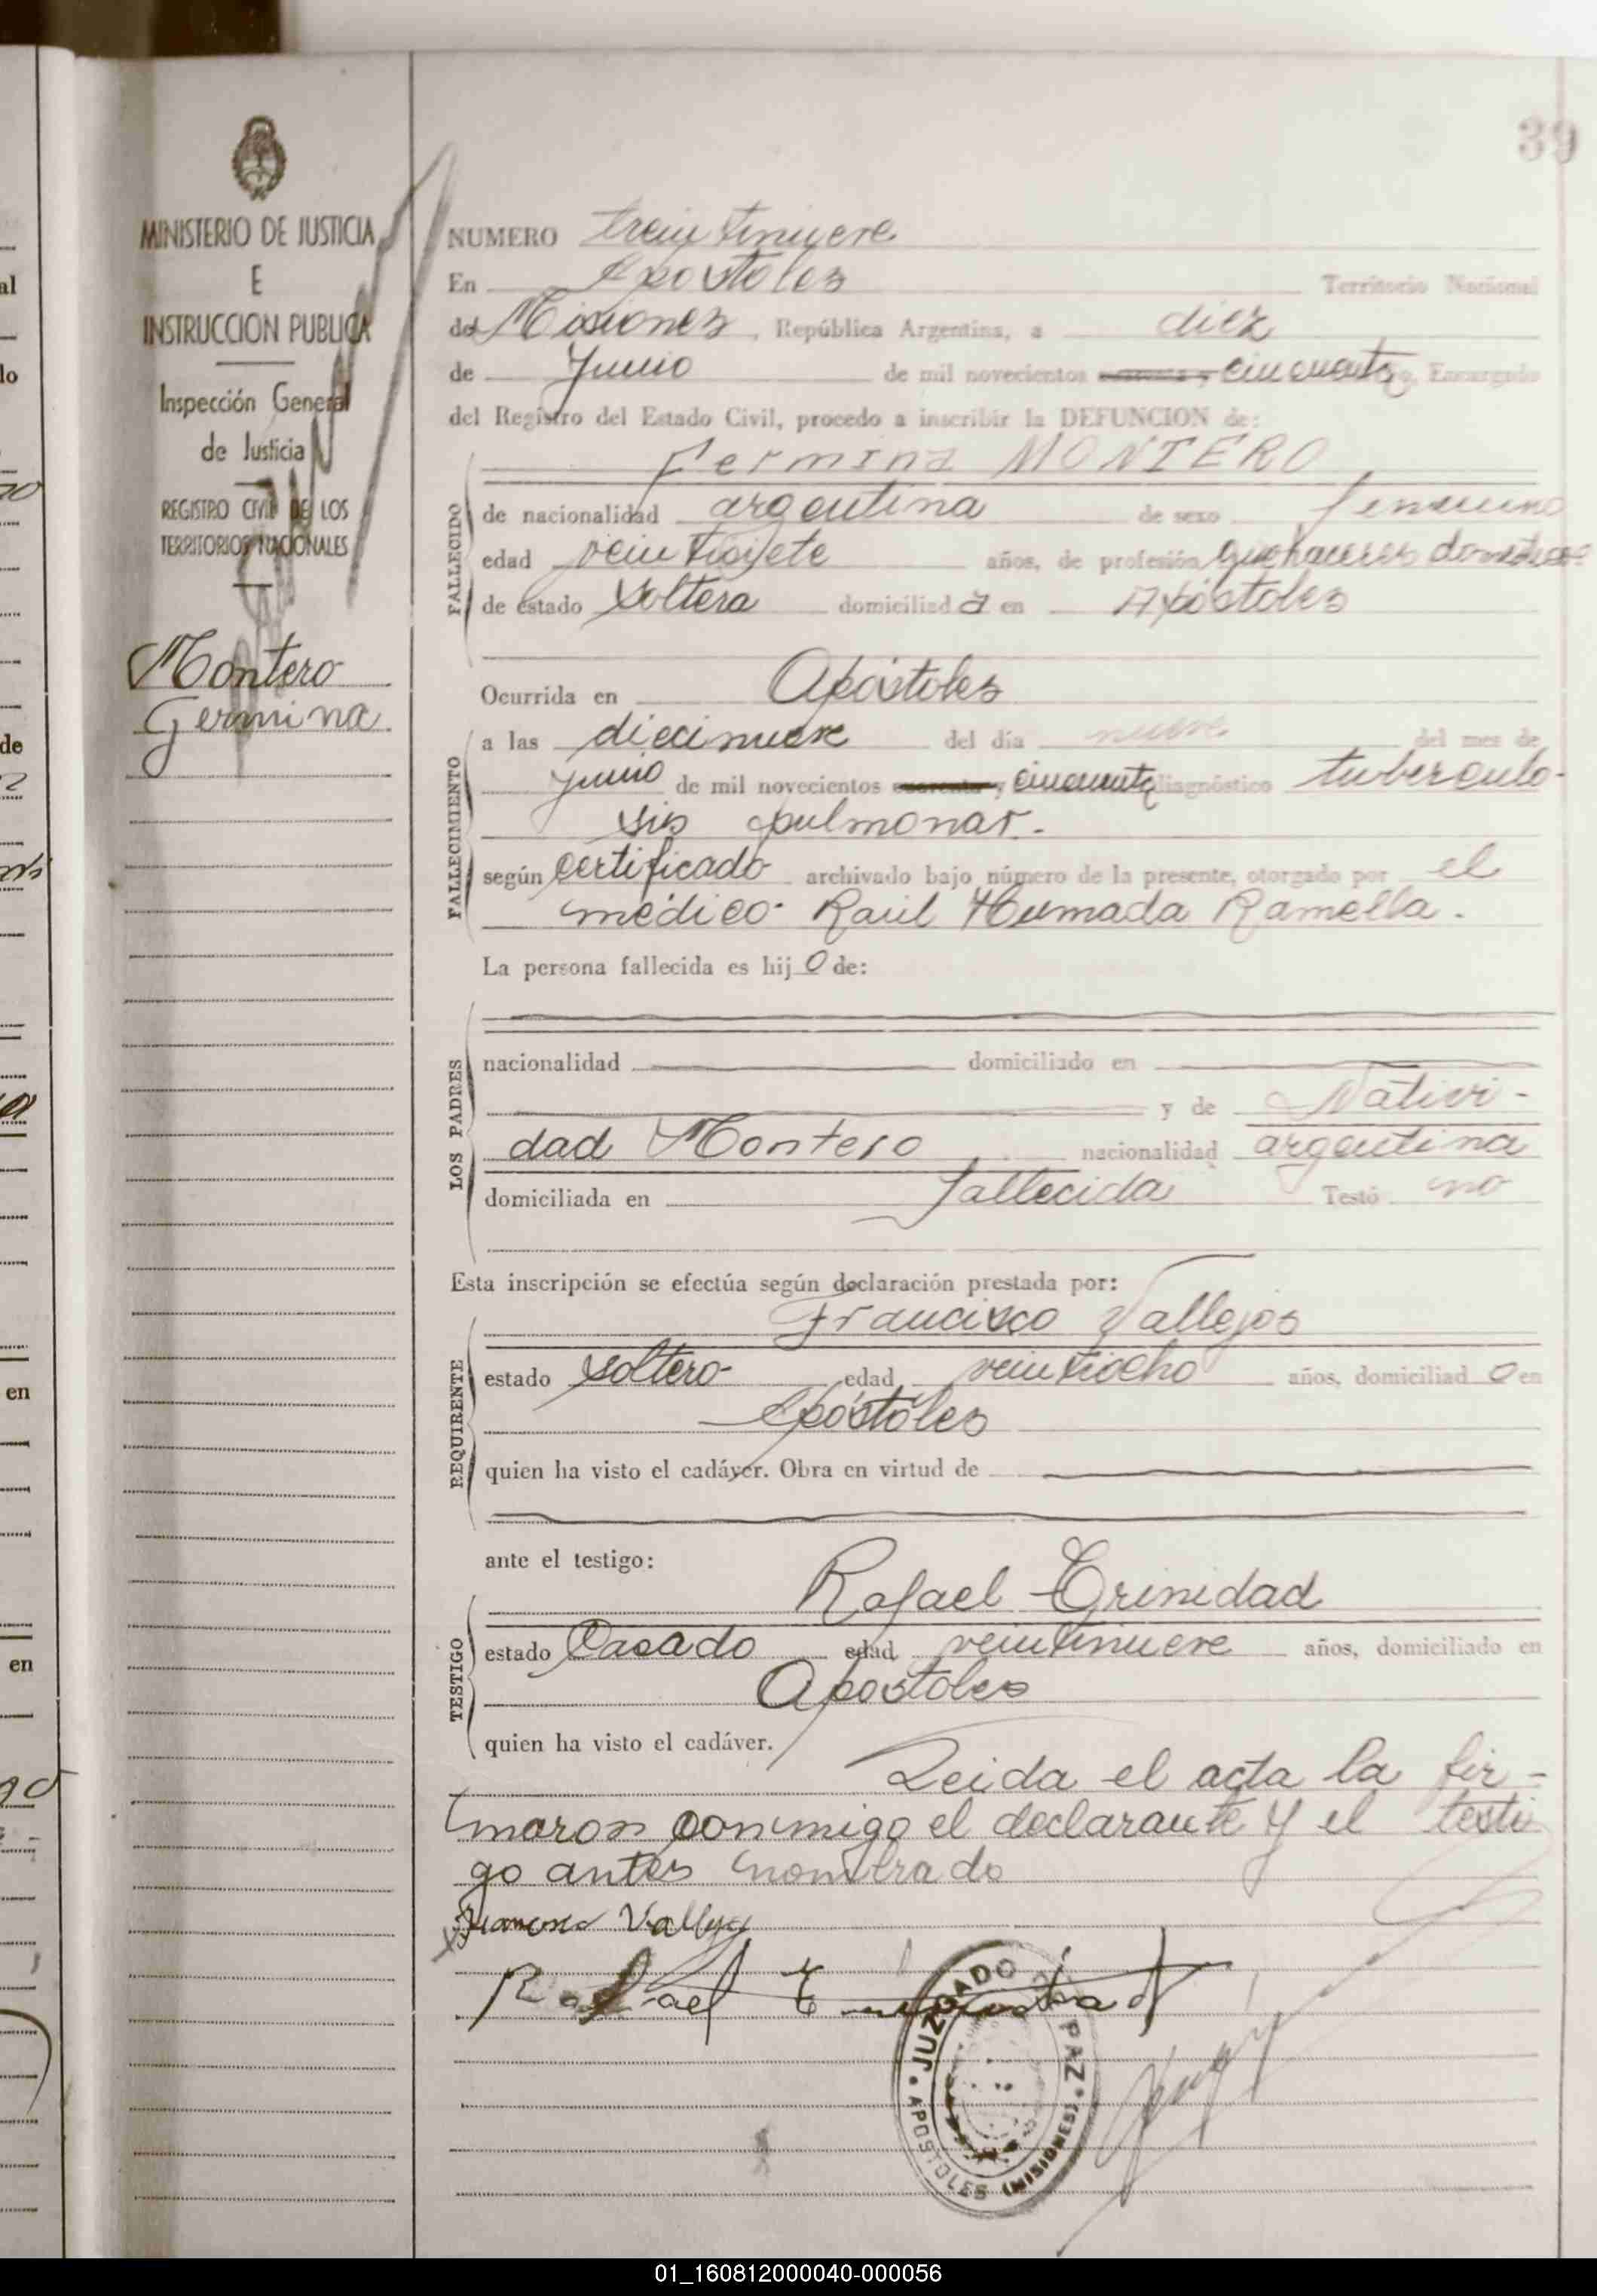 39
MINISTERIO DE JUSTICIA
E
INSTRUCCION PUBLICA
Inspección General
de Justicia
REGISTRO CIVIL DE LOS
TERRITORIOS NACIONALES
Montero
Germina
NUMERO treintinueve
En Apostoles Territorio Nacional
del Misiones, República Argentina, a diez
de Junio de mil novecientos cuarenta y cincuenta yo, Encargado
del Registro del Estado Civil, procedo a inscribir la DEFUNCION de:
Fermina MONTERO
FALLECIDO
de nacionalidad argentina de sexo femenino
edad veintisiete años, de profesión quehaceres domésticos
de estado soltera domiciliada en Apóstoles
Ocurrida en Apóstoles
FALLECIMIENTO
a las diecinueve del día nueve del mes de
junio de mil novecientos cuarenta y cincuenta diagnóstico tuberculo-
sis pulmonar.-
según certificado archivado bajo número de la presente, otorgado por el
médico Raúl Humada Ramella.
La persona fallecida es hijo de:
LOS PADRES
nacionalidad domiciliado en
y de Nativi-
dad Montero nacionalidad argentina
domiciliada en fallecida Testó no
Esta inscripción se efectúa según declaración prestada por:
Francisco Vallejos
REQUIRENTE
estado soltero edad veintiocho años, domiciliado en
Apóstoles
quien ha visto el cadáver. Obra en virtud de
ante el testigo:
Rafael Trinidad
TESTIGO
estado Casado edad veintinueve años, domiciliado en
Apostoles
quien ha visto el cadáver.
Leida el acta la fir-
maron conmigo el declarante y el testi
go antes nombrado
Vallejos
Rafael
JUZGADO DE PAZ
APOSTOLES (MISIONES)
01_160812000040-000056